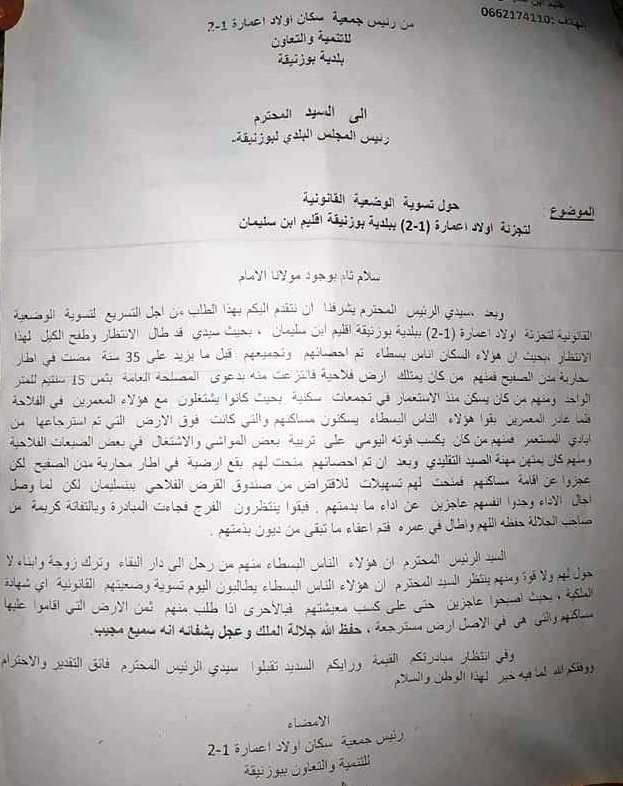 الهاتف :0662174110
من رئيس جمعية سكان اولاد اعمارة 1-2
للتنمية والتعاون
بلدية بوزنيقة
الى السيد المحترم
رئيس المجلس البلدي لبوزنيقة-
الموضوع : حول تسوية الوضعية القانونية
لتجزئة اولاد اعمارة (1-2) ببلدية بوزنيقة اقليم ابن سليمان
سلام تام بوجود مولانا الامام
وبعد ،سيدي الرئيس المحترم يشرفنا ان نتقدم اليكم بهذا الطلب من اجل التسريع لتسوية الوضعية
القانونية لتجزئة اولاد اعمارة (1-2) ببلدية بوزنيقة اقليم ابن سليمان ، بحيث سيدي قد طال الانتظار وطفح الكيل لهذا
الانتظار ،بحيث ان هؤلاء السكان اناس بسطاء تم احصائهم وتجميعهم قبل ما يزيد على 35 سنة مضت في اطار
محاربة مدن الصفيح فمنهم من كان يمتلك ارض فلاحية فانتزعت منه بدعوى المصلحة العامة بثمن 15 سنتيم للمتر
الواحد ومنهم من كان يسكن منذ الاستعمار في تجمعات سكنية بحيث كانوا يشتغلون مع هؤلاء المعمرين في الفلاحة
فلما غادر المعمرين بقوا هؤلاء الناس البسطاء يسكنون مساكنهم والتي كانت فوق الارض التي تم استرجاعها من
ايادي المستعمر فمنهم من كان يكسب قوته اليومي على تربية بعض المواشي والاشتغال في بعض الضيعات الفلاحية
ومنهم كان يمتهن مهنة الصيد التقليدي وبعد ان تم احصائهم منحت لهم بقع ارضية في اطار محاربة مدن الصفيح لكن
عجزوا عن اقامة مساكنهم فمنحت لهم تسهيلات للاقتراض من صندوق القرض الفلاحي ببنسليمان لكن لما وصل
اجال الاداء وجدوا انفسهم عاجزين عن اداء ما بذمتهم . فبقوا ينتظرون الفرج فجاءت المبادرة وبالتفاتة كريمة من
صاحب الجلالة حفظه اللهم واطال في عمره فتم اعفاء ما تبقى من ديون بذمتهم .
السيد الرئيس المحترم ان هؤلاء الناس البسطاء منهم من رحل الى دار البقاء وترك زوجة وابناء لا
حول لهم ولا قوة ومنهم ينتظر السيد المحترم ان هؤلاء الناس البسطاء يطالبون اليوم تسوية وضعيتهم القانونية اي شهادة
الملكية ، بحيث اصبحوا عاجزين حتى على كسب معيشتهم فبالأحرى اذا طلب منهم ثمن الارض التي اقاموا عليها
مساكنهم والتي هي في الاصل ارض مسترجعة ، حفظ الله جلالة الملك وعجل بشفائه انه سميع مجيب.
وفي انتظار مبادرتكم القيمة ورايكم السديد تقبلوا سيدي الرئيس المحترم فائق التقدير والاحترام
ووفقكم الله لما فيه خير لهذا الوطن والسلام
الامضاء
رئيس جمعية سكان اولاد اعمارة 1-2
للتنمية والتعاون ببوزنيقة